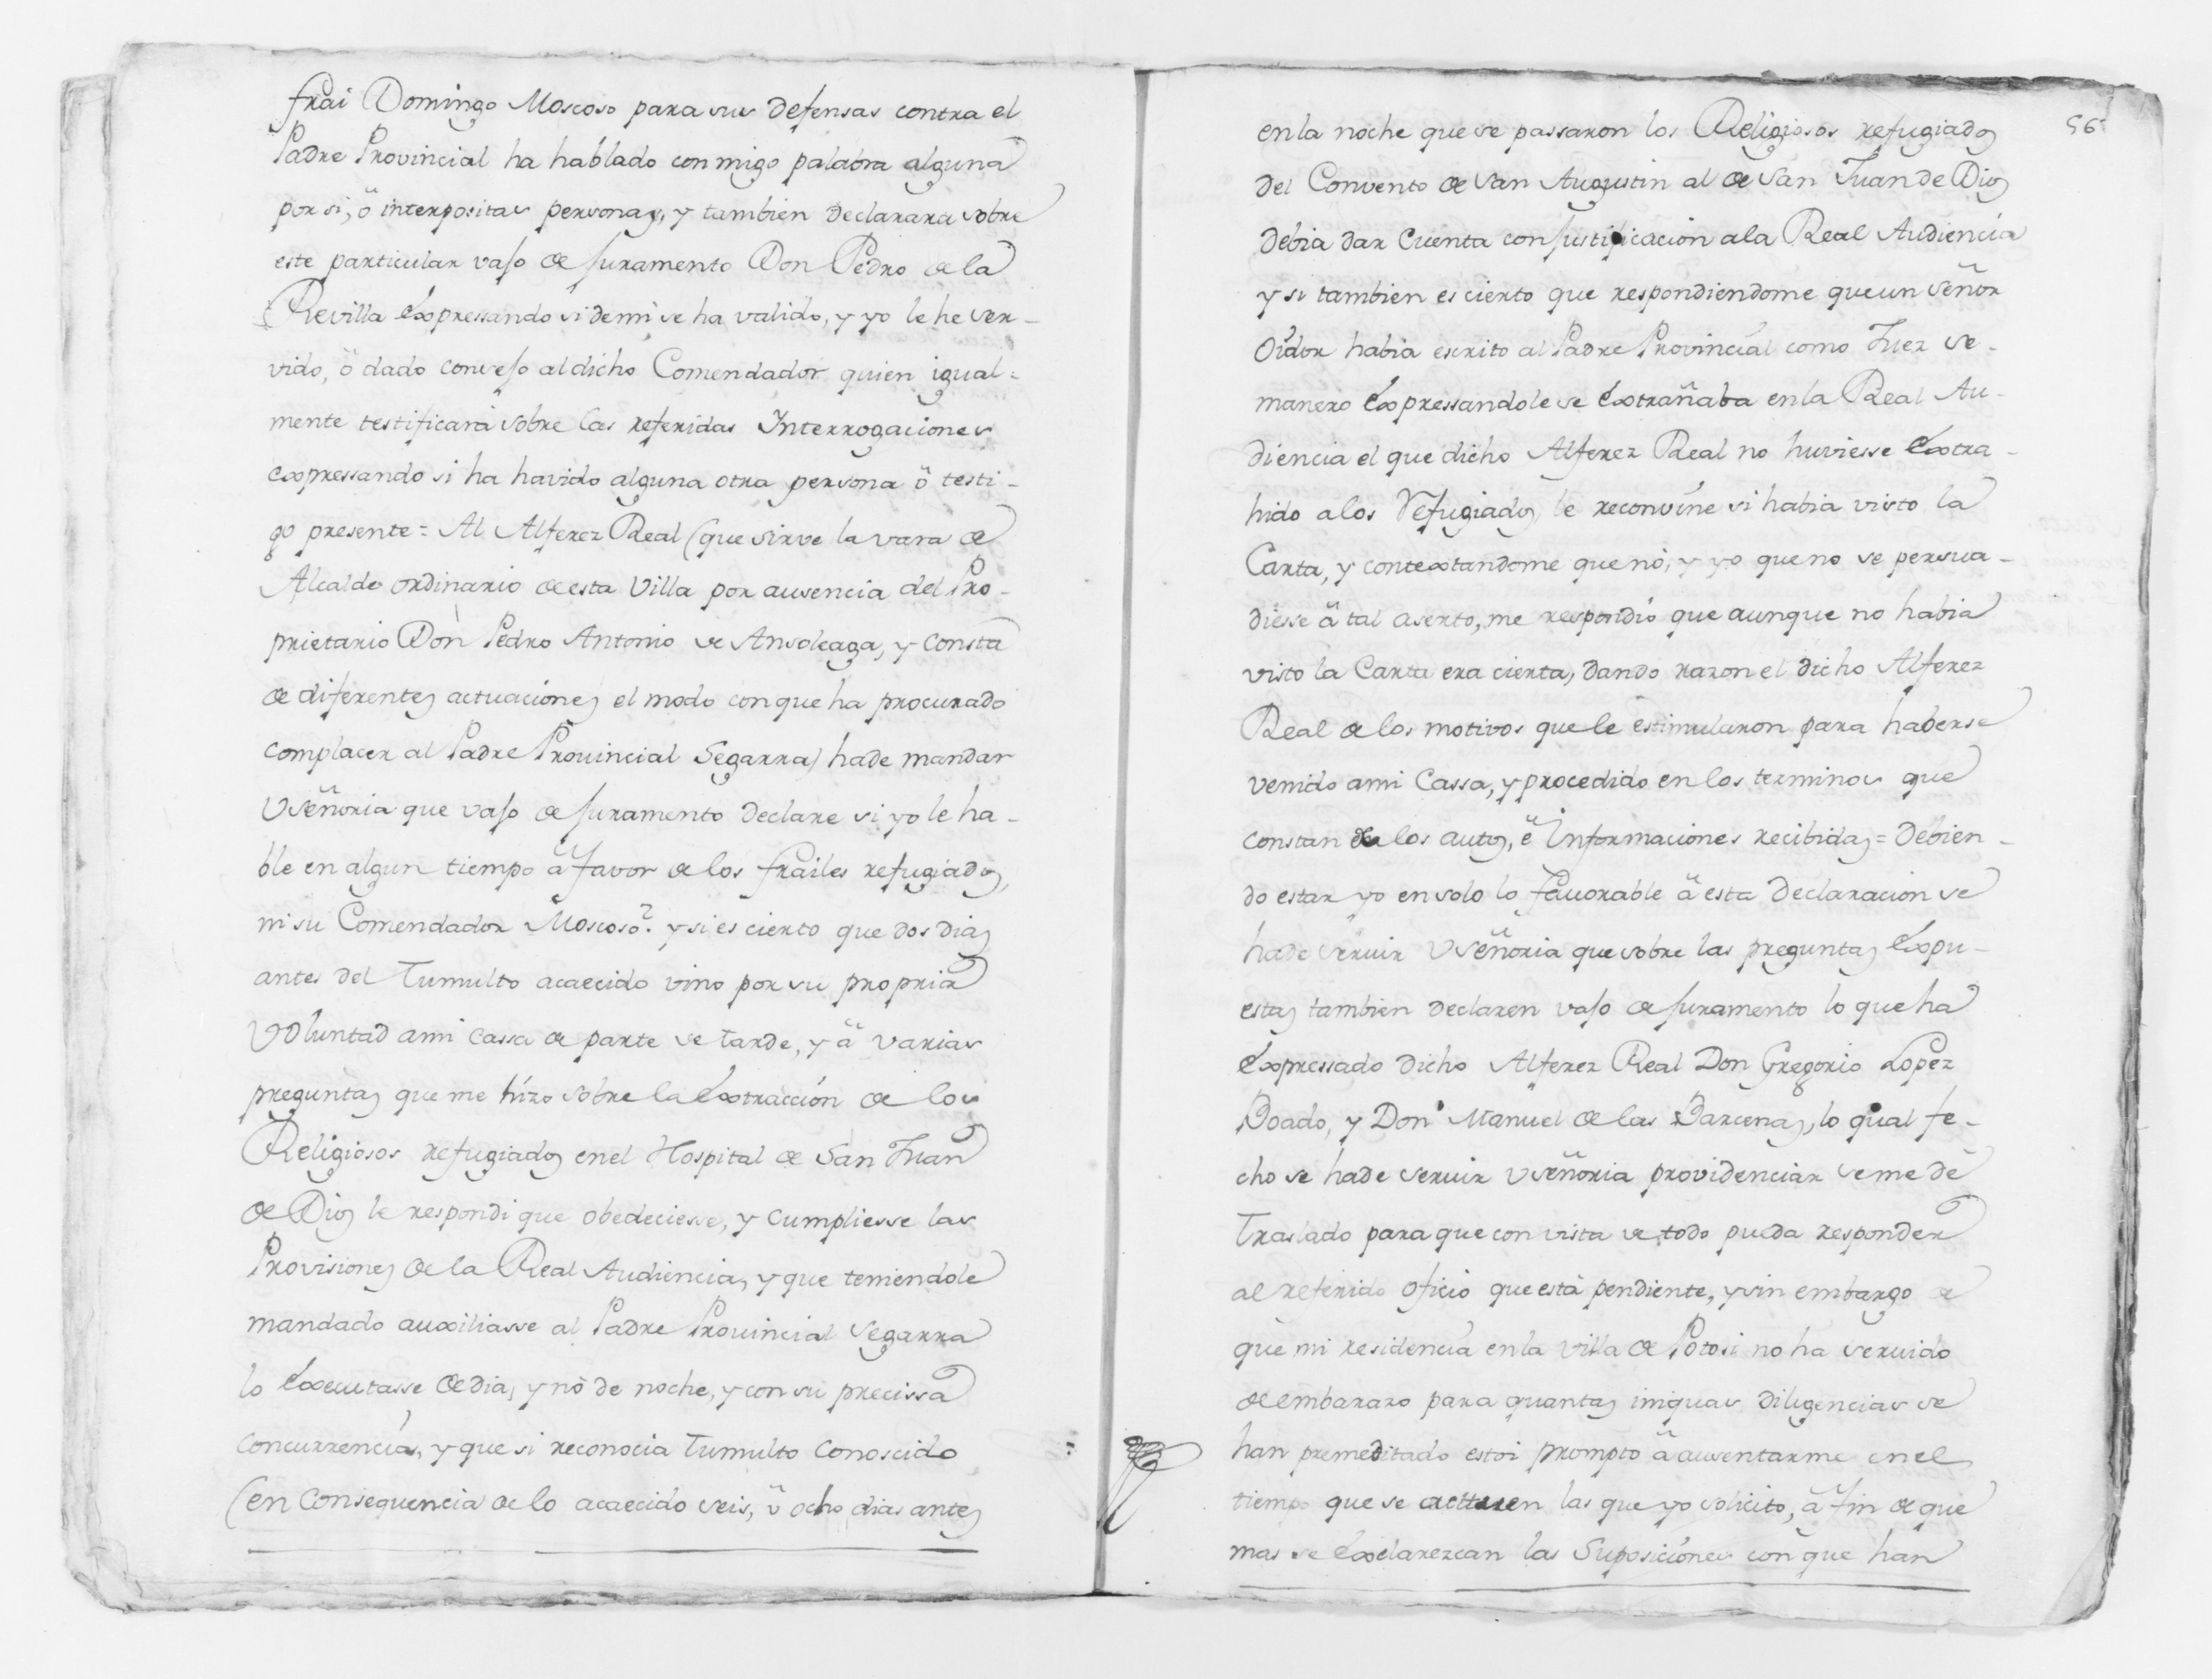 frai Domingo Moscoso para sus defensas contra el
Padre Provincial ha hablado con migo palabra alguna
por si, ô interpositas personas, y tambien declarara sobre
este particular vajo de juramento Don Pedro de la
Revilla expressando si de mi se ha valido, y yo le he ser-
vido, ô dado consejo al dicho Comendador quien igual=
mente testificarà sobre las referidas Interrogaciones
expressando si ha havido alguna otra persona ô testi-
go presente = Al Alferez Real (que sirve la vara de
Alcalde ordinario de esta Villa por ausencia del Pro-
prietario Don Pedro Antonio de Ansoleaga, y consta
de diferentes actuaciones el modo con que ha procurado
complacer al Padre Provincial Segarra) ha de mandar
Vseñoria que vajo de juramento declare si yo le ha-
ble en algun tiempo â favor de los frailes refugiados,
ni su Comendador Moscoso? y si es cierto que dos dias
antes del Tumulto acaecido vino por su propria
Voluntad a mi cassa de parte de tarde, y â varias
preguntas que me hizo sobre la extracción de los
Religiosos refugiados en el Hospital de San Juan
de Dios le respondi que obedeciesse, y cumpliesse las
Provisiones de la Real Audiencia, y que teniendole
mandado auxiliasse al Padre Provincial Segarra
lo executasse de dia, y nò de noche, y con su precissa
concurrencia, y que si reconocia Tumulto conoscido
(en consequencia de lo acaecido seis, û ocho dias antes
56
en la noche que se passaron los Religiosos refugiados
del Convento de San Augustin al de San Juan de Dios
debia dar cuenta con justificacion a la Real Audiencia
y si tambien es cierto que respondiendome que un Señor
Oidor habia escrito al Padre Provincial como Juez se-
manero expressandole se extrañaba en la Real Au-
diencia el que dicho Alferez Real no huviesse extra-
hido a los Refugiados le reconvine si habia visto la
Carta, y contextandome que nò, y yo que no se persua-
diesse â tal aserto, me respondió que aunque no habia
visto la Carta era cierta, dando razon el dicho Alferez
Real de los motivos que le estimularon para haberse
venido a mi Cassa, y procedido en los terminos que
constan de los autos, ê Informaciones recibidas = Debien-
do estar yo en solo lo favorable â esta declaracion se
ha de servir Vseñoria que sobre las preguntas expu-
estas tambien declaren vajo de juramento lo que ha
expressado dicho Alferez Real Don Gregorio Lopez
Boado, y Don Manuel de las Barcenas, lo qual fe-
cho se ha de servir Vseñoria providenciar se me dè
traslado para que con vista de todo pueda responder
al referido oficio que està pendiente, y sin embargo de
que mi residencia en la Villa de Potosi no ha servido
de embarazo para quantas iniquas diligencias se
han premeditado estoi prompto â ausentarme en el
tiempo que se actuen las que yo solicito, â fin de que
mas se exclarezcan las suposiciones con que han